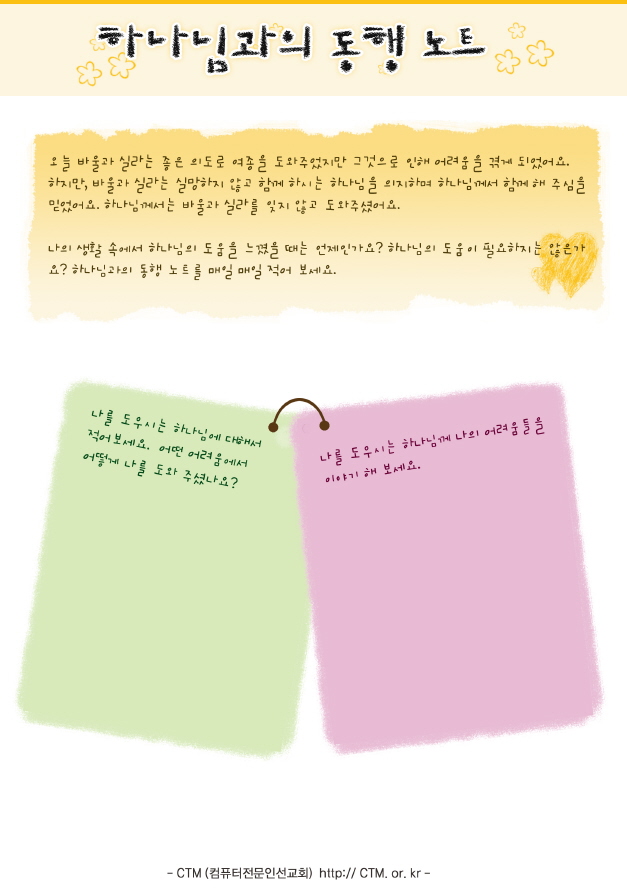 하나님과의 동행 노트
오늘 바울과 실라는 좋은 의도로 여종을 도와주었지만 그것으로 인해 어려움을 겪게 되었어요.
하지만, 바울과 실라는 실망하지 않고 함께 하시는 하나님을 의지하며 하나님께서 함께 해 주심을
믿었어요. 하나님께서는 바울과 실라를 잊지 않고 도와주셨어요.
나의 생활 속에서 하나님의 도움을 느꼈을 때는 언제인가요? 하나님의 도움이 필요하지는 않은가
요? 하나님과의 동행 노트를 매일 매일 적어 보세요.
나를 도우시는 하나님에 대해서
적어보세요. 어떤 어려움에서
어떻게 나를 도와 주셨나요?
나를 도우시는 하나님께 나의 어려움들을
이야기 해 보세요.
- CTM (컴퓨터전문인선교회) http:// CTM. or. kr -